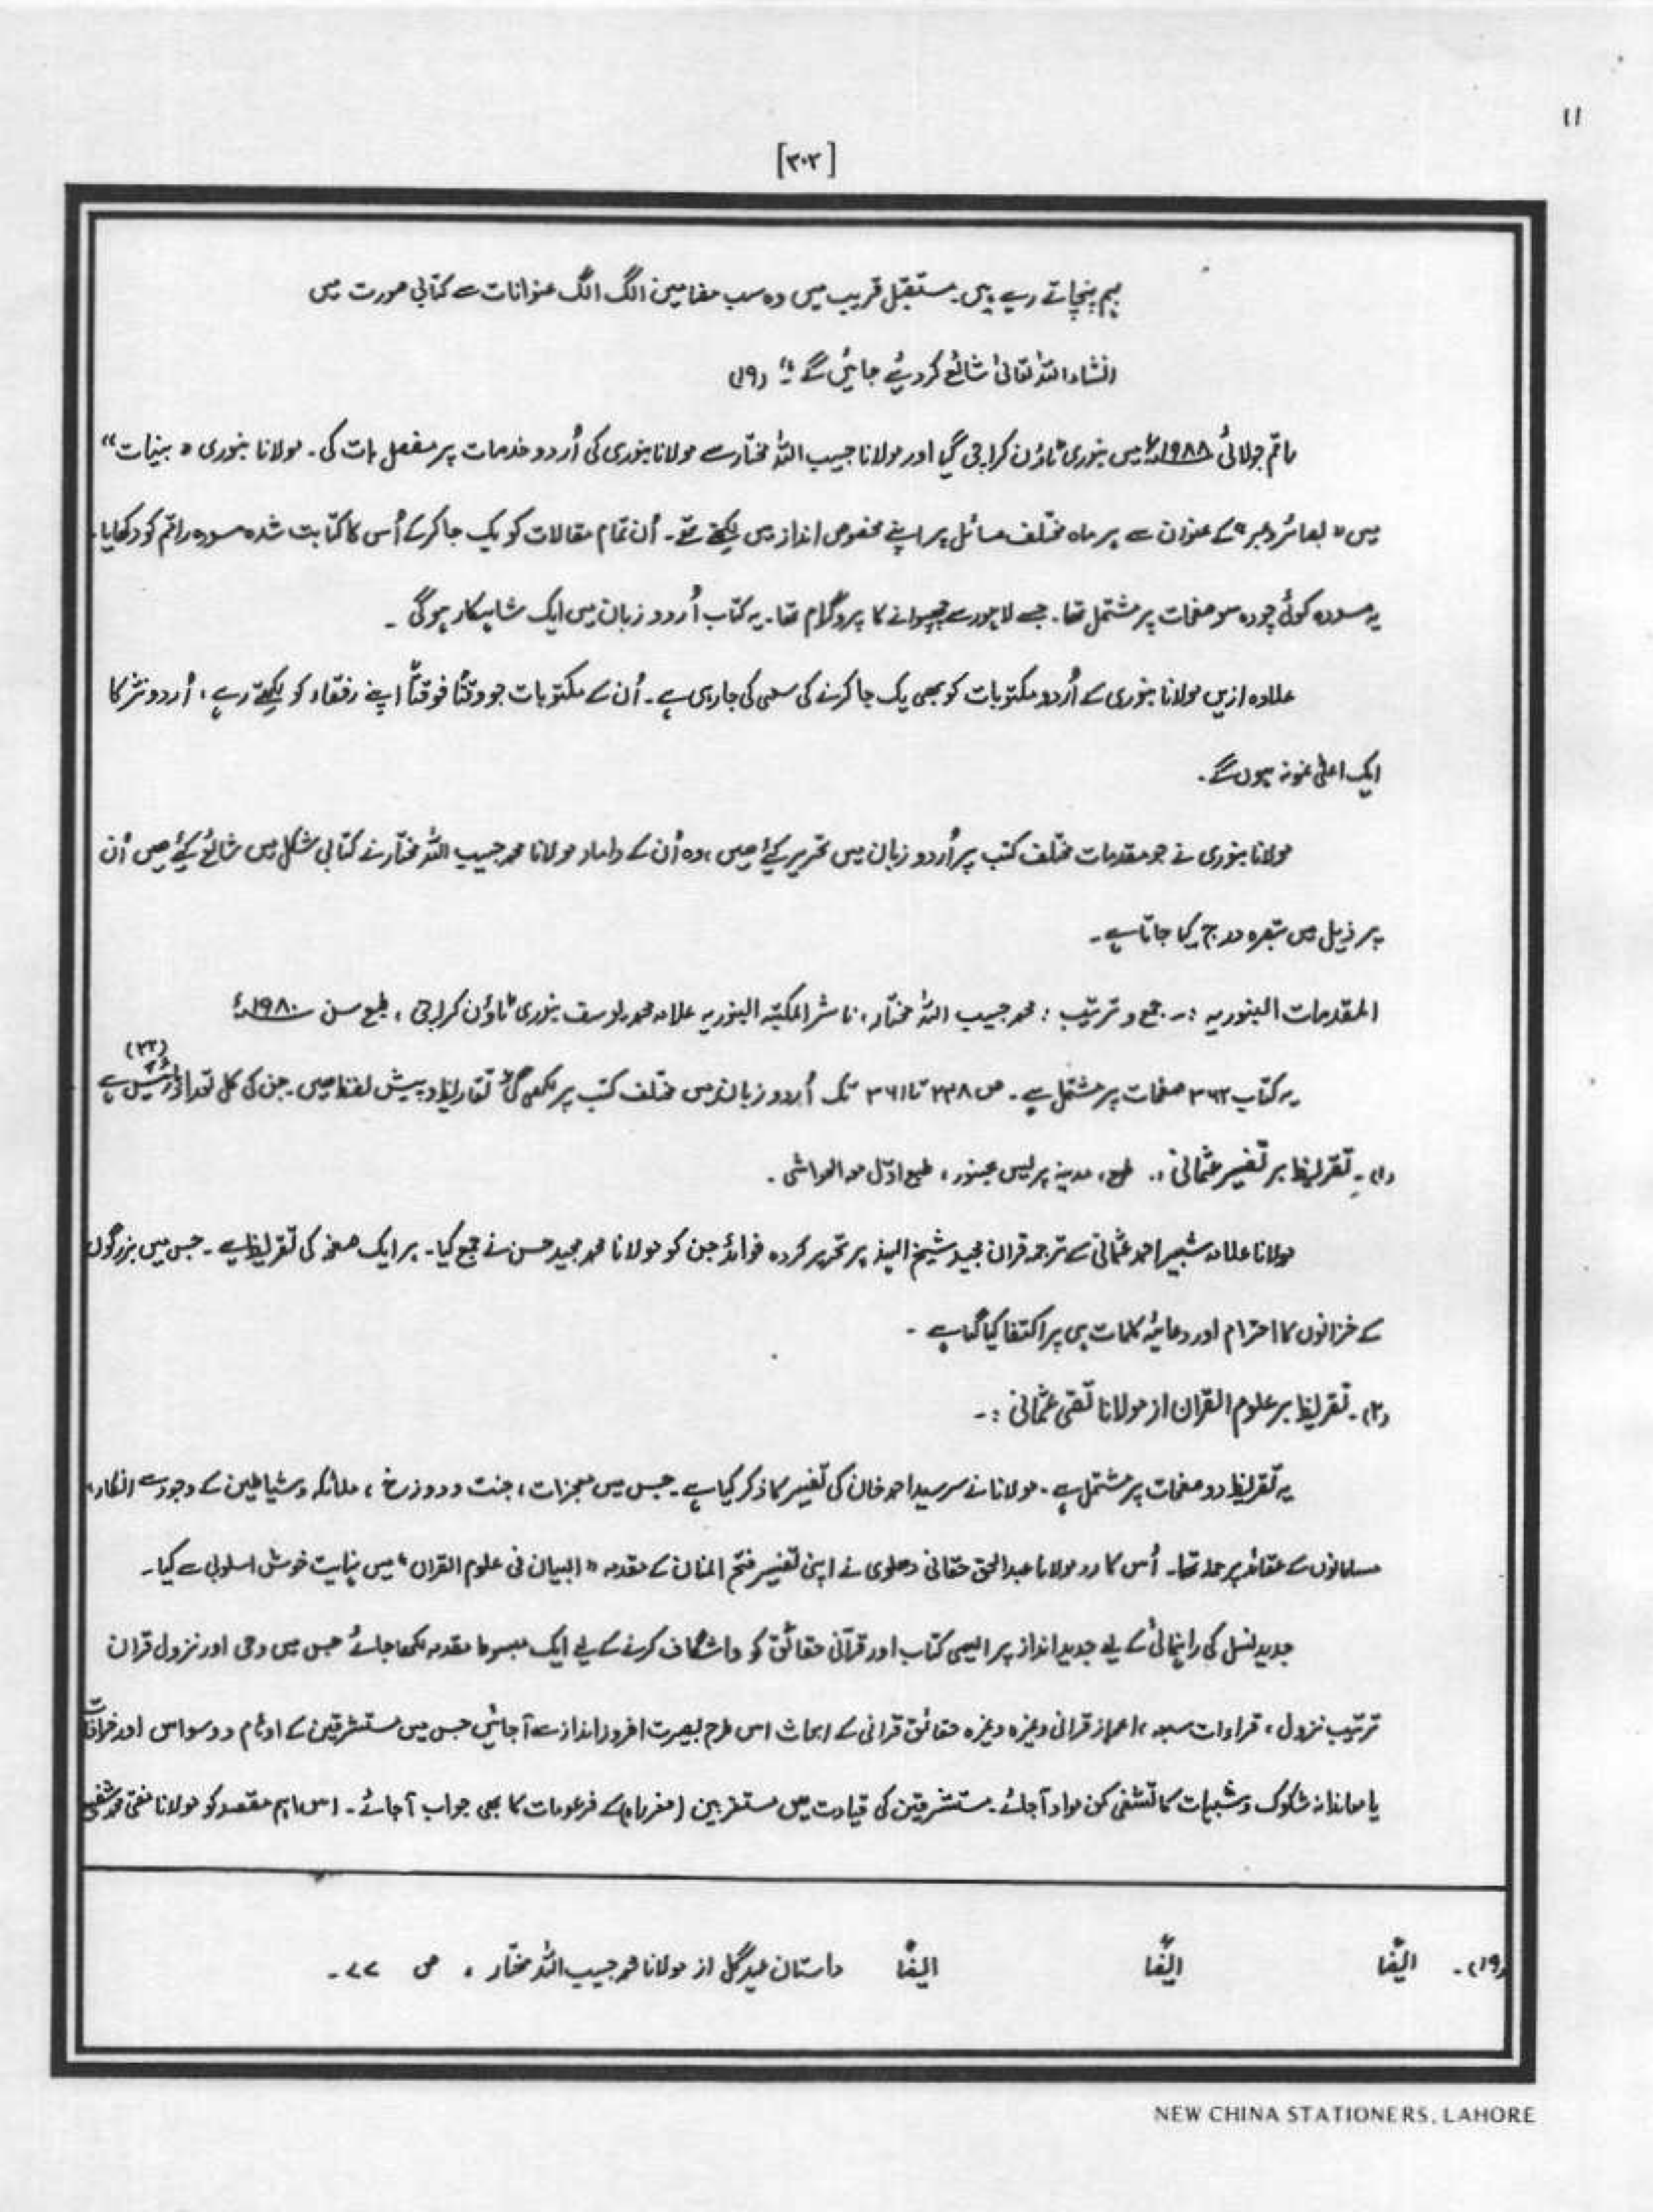 ۱۱
[۳۰۲]
بہم پہنچاتے رہے ہیں۔ مستقبل قریب میں وہ سب مضامین الگ الگ عنوانات سے کتابی صورت میں
انشاء اللہ تعالیٰ شائع کردیئے جائیں گے۔" (۱۹)
راقم جولائی ۱۹۸۸ء میں بنوری ٹاؤن کراچی گیا اور مولانا حبیب اللہ مختار سے مولانا بنوری کی اُردو خدمات پر مفصل بات کی۔ مولانا بنوری "بینات"
میں "بصائر و عبر" کے عنوان سے ہر ماہ مختلف مسائل پر اپنے مخصوص انداز میں لکھتے تھے۔ اُن تمام مقالات کو یک جا کرکے اُس کا کتابت شدہ مسودہ راقم کو دکھایا۔
یہ مسودہ کوئی چودہ سو صفحات پر مشتمل تھا۔ جسے لاہور سے چھپوانے کا پروگرام تھا۔ یہ کتاب اُردو زبان میں ایک شاہکار ہوگی۔
علاوہ ازیں مولانا بنوری کے اُردو مکتوبات کو بھی یک جا کرنے کی سعی کی جارہی ہے۔ اُن کے مکتوبات جو وقتاً فوقتاً اپنے رفقاء کو لکھتے رہے، اُردو نثر کا
ایک اعلیٰ نمونہ ہوں گے۔
مولانا بنوری نے جو مقدمات مختلف کتب پر اُردو زبان میں تحریر کیئے ھیں، وہ اُن کے داماد مولانا محمد حبیب اللہ مختار نے کتابی شکل میں شائع کیئے ھیں اُن
پر ذیل میں تبصرہ درج کیا جاتا ہے۔
المقدمات البنوریہ :۔ جمع و ترتیب : محمد حبیب اللہ مختار، ناشر المکتبہ البنوریہ علامہ محمد یوسف بنوری ٹاؤن کراچی، طبع سن ۱۹۸۰ء
یہ کتاب ۳۶۲ صفحات پر مشتمل ہے۔ ص ۲۳۸ تا ۳۶۱ تک اُردو زبان میں مختلف کتب پر لکھی گئی تقاریظ و پیش لفظ ھیں۔ جن کی کل تعداد ہے (۲۲)
(۱)۔ تقریظ بر تفسیر عثمانی :۔ طبع، مدینہ پریس بجنور، طبع اوّل مع الحواشی۔
مولانا علامہ شبیر احمد عثمانی کے ترجمہ قران مجید شیخ الہند پر تحریر کردہ فوائد جن کو مولانا محمد مجید حسن نے جمع کیا۔ ہر ایک صفحہ کی تقریظ ہے۔ جس میں بزرگوں
کے خزانوں کا احترام اور دعائیہ کلمات ہی پر اکتفا کیا گیا ہے۔
(۲)۔ تقریظ بر علوم القران از مولانا تقی عثمانی :۔
یہ تقریظ دو صفحات پر مشتمل ہے۔ مولانا نے سرسید احمد خان کی تفسیر کا ذکر کیا ہے۔ جس میں معجزات، جنت و دوزخ، ملائکہ و شیاطین کے وجود سے انکار،
مسلمانوں کے عقائد پر حملہ تھا۔ اُس کا رد مولانا عبدالحق حقانی دھلوی نے اپنی تفسیر فتح المنان کے مقدمہ "البیان فی علوم القران" میں نہایت خوش اسلوبی سے کیا۔
جدید نسل کی راہنمائی کے لیے جدید انداز پر ایسی کتاب اور قرآنی حقائق کو واشگاف کرنے کے لیے ایک مبسوط مقدمہ لکھا جائے جس میں وحی اور نزول قران
ترتیب نزول، قراءات سبعہ، اعجاز قرانی وغیرہ وغیرہ حقائق قرانی کے ابحاث اس طرح بصیرت افروز انداز سے آجائیں جس میں مستشرقین کے اوہام و وسواس اور خرافات
یا معاندانہ شکوک و شبہات کا تشفی کن مواد آجائے۔ مستشرقین کی قیادت میں مستغربین (مغرب زدہ) کے مزعومات کا بھی جواب آجائے۔ اس اہم مقصد کو مولانا مفتی محمد شفیع
(۱۹)۔ ایضًا ایضًا ایضًا داستان عہد گل از مولانا محمد حبیب اللہ مختار، ص ۷۷۔
NEW CHINA STATIONERS, LAHORE